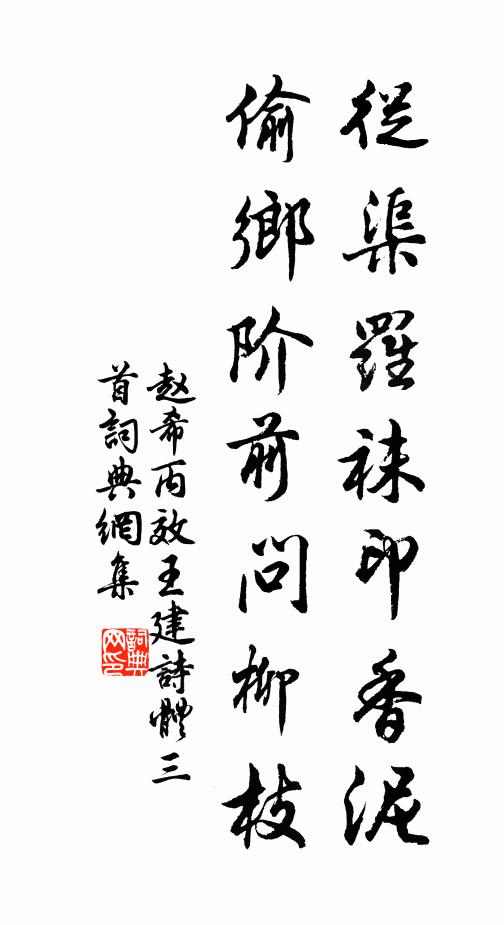 從渠羅袜印香泥
偷鄉阶前問柳枝
赵希丙效王建詩體三
首詞典網集
詞典
网印